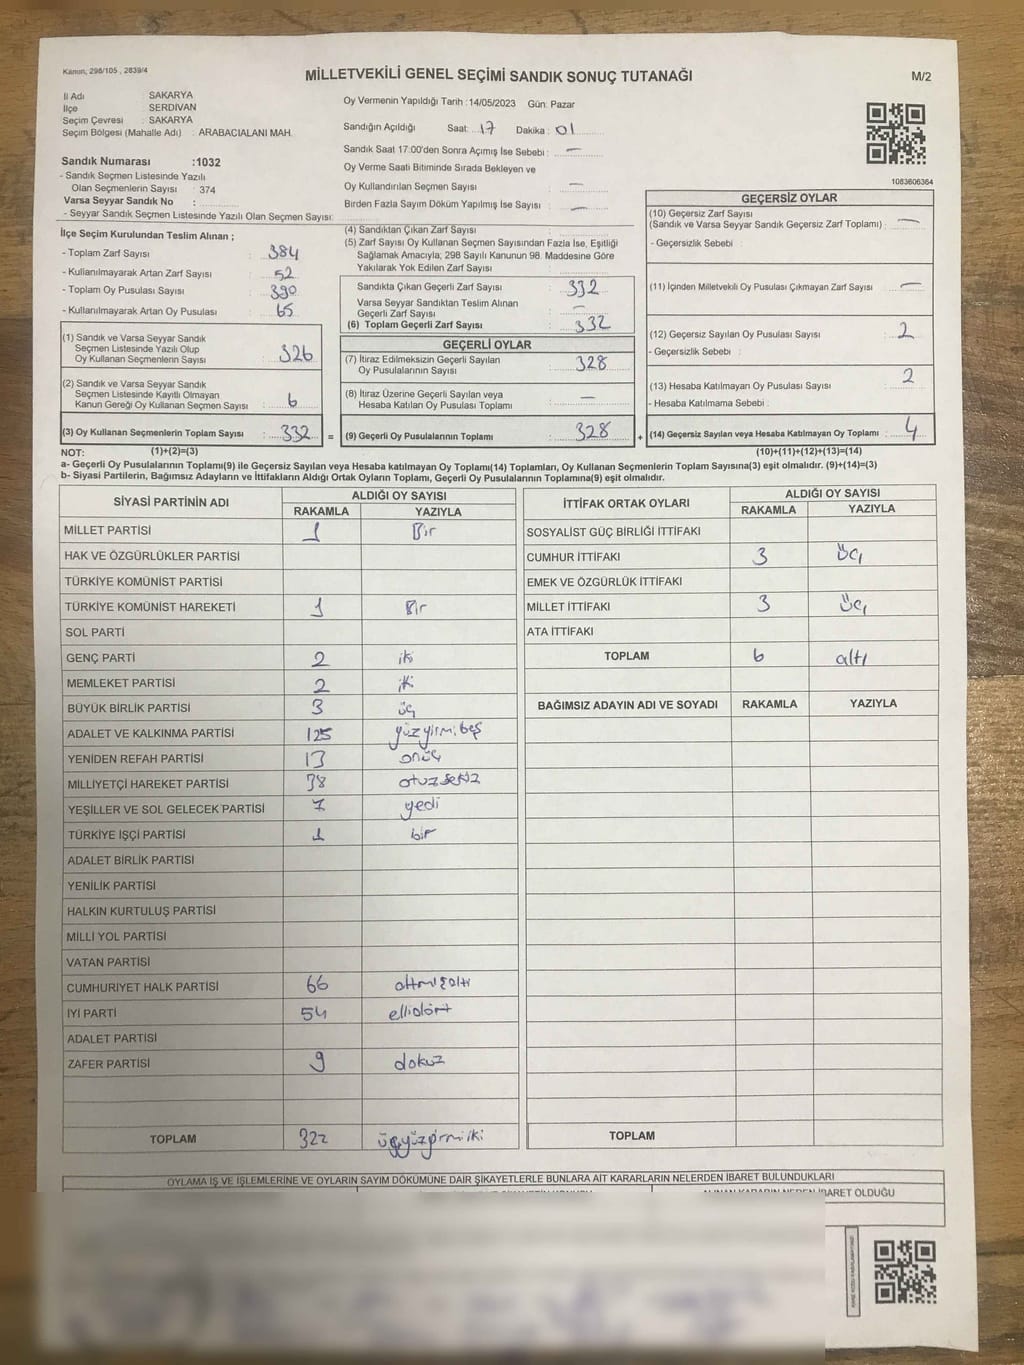 Kanun, 298/105 , 2839/4
MİLLETVEKİLİ GENEL SEÇİMİ SANDIK SONUÇ TUTANAĞI
M/2
İl Adı SAKARYA
İlçe SERDİVAN
Seçim Çevresi : SAKARYA
Seçim Bölgesi (Mahalle Adı) : ARABACIALANI MAH.
Oy Vermenin Yapıldığı Tarih :14/05/2023 Gün: Pazar
Sandığın Açıldığı Saat: 17 Dakika : 01
Sandık Saat 17:00'den Sonra Açımış İse Sebebi : —
Oy Verme Saati Bitiminde Sırada Bekleyen ve
Oy Kullandırılan Seçmen Sayısı —
Birden Fazla Sayım Döküm Yapılmış İse Sayısı : —
1083606364
Sandık Numarası :1032
- Sandık Seçmen Listesinde Yazılı
Olan Seçmenlerin Sayısı : 374
Varsa Seyyar Sandık No :
- Seyyar Sandık Seçmen Listesinde Yazılı Olan Seçmen Sayısı:
İlçe Seçim Kurulundan Teslim Alınan ;
- Toplam Zarf Sayısı : 384
- Kullanılmayarak Artan Zarf Sayısı : 52
- Toplam Oy Pusulası Sayısı : 390
- Kullanılmayarak Artan Oy Pusulası : 65
(1) Sandık ve Varsa Seyyar Sandık
Seçmen Listesinde Yazılı Olup
Oy Kullanan Seçmenlerin Sayısı : 326
(2) Sandık ve Varsa Seyyar Sandık
Seçmen Listesinde Kayıtlı Olmayan
Kanun Gereği Oy Kullanan Seçmen Sayısı : 6
(3) Oy Kullanan Seçmenlerin Toplam Sayısı : 332 =
(4) Sandıktan Çıkan Zarf Sayısı :
(5) Zarf Sayısı Oy Kullanan Seçmen Sayısından Fazla İse, Eşitliği
Sağlamak Amacıyla; 298 Sayılı Kanunun 98. Maddesine Göre
Yakılarak Yok Edilen Zarf Sayısı :
Sandıkta Çıkan Geçerli Zarf Sayısı : 332
Varsa Seyyar Sandıktan Teslim Alınan
Geçerli Zarf Sayısı : —
(6) Toplam Geçerli Zarf Sayısı : 332
GEÇERLİ OYLAR
(7) İtiraz Edilmeksizin Geçerli Sayılan
Oy Pusulalarının Sayısı : 328
(8) İtiraz Üzerine Geçerli Sayılan veya
Hesaba Katılan Oy Pusulası Toplamı : —
(9) Geçerli Oy Pusulalarının Toplamı : 328 +
GEÇERSİZ OYLAR
(10) Geçersiz Zarf Sayısı
(Sandık ve Varsa Seyyar Sandık Geçersiz Zarf Toplamı) : —
- Geçersizlik Sebebi :
(11) İçinden Milletvekili Oy Pusulası Çıkmayan Zarf Sayısı : —
(12) Geçersiz Sayılan Oy Pusulası Sayısı : 2
- Geçersizlik Sebebi :
(13) Hesaba Katılmayan Oy Pusulası Sayısı : 2
- Hesaba Katılmama Sebebi :
(14) Geçersiz Sayılan veya Hesaba Katılmayan Oy Toplamı : 4
NOT: (1)+(2)=(3) (10)+(11)+(12)+(13)=(14)
a- Geçerli Oy Pusulalarının Toplamı(9) ile Geçersiz Sayılan veya Hesaba katılmayan Oy Toplamı(14) Toplamları, Oy Kullanan Seçmenlerin Toplam Sayısına(3) eşit olmalıdır. (9)+(14)=(3)
b- Siyasi Partilerin, Bağımsız Adayların ve İttifakların Aldığı Ortak Oyların Toplamı, Geçerli Oy Pusulalarının Toplamına(9) eşit olmalıdır.
SİYASİ PARTİNİN ADI ALDIĞI OY SAYISI
RAKAMLA YAZIYLA
MİLLET PARTİSİ 1 Bir
HAK VE ÖZGÜRLÜKLER PARTİSİ
TÜRKİYE KOMÜNİST PARTİSİ
TÜRKİYE KOMÜNİST HAREKETİ 1 Bir
SOL PARTİ
GENÇ PARTİ 2 iki
MEMLEKET PARTİSİ 2 iki
BÜYÜK BİRLİK PARTİSİ 3 üç
ADALET VE KALKINMA PARTİSİ 125 yüzyirmibeş
YENİDEN REFAH PARTİSİ 13 onüç
MİLLİYETÇİ HAREKET PARTİSİ 38 otuzsekiz
YEŞİLLER VE SOL GELECEK PARTİSİ 7 yedi
TÜRKİYE İŞÇİ PARTİSİ 1 bir
ADALET BİRLİK PARTİSİ
YENİLİK PARTİSİ
HALKIN KURTULUŞ PARTİSİ
MİLLİ YOL PARTİSİ
VATAN PARTİSİ
CUMHURİYET HALK PARTİSİ 66 altmışaltı
İYİ PARTİ 54 ellidört
ADALET PARTİSİ
ZAFER PARTİSİ 9 dokuz
TOPLAM 322 üçyüzyirmiiki
İTTİFAK ORTAK OYLARI ALDIĞI OY SAYISI
RAKAMLA YAZIYLA
SOSYALİST GÜÇ BİRLİĞİ İTTİFAKI
CUMHUR İTTİFAKI 3 üç
EMEK VE ÖZGÜRLÜK İTTİFAKI
MİLLET İTTİFAKI 3 üç
ATA İTTİFAKI
TOPLAM 6 altı
BAĞIMSIZ ADAYIN ADI VE SOYADI RAKAMLA YAZIYLA
TOPLAM
OYLAMA İŞ VE İŞLEMLERİNE VE OYLARIN SAYIM DÖKÜMÜNE DAİR ŞİKAYETLERLE BUNLARA AİT KARARLARIN NELERDEN İBARET BULUNDUKLARI
İBARET OLDUĞU